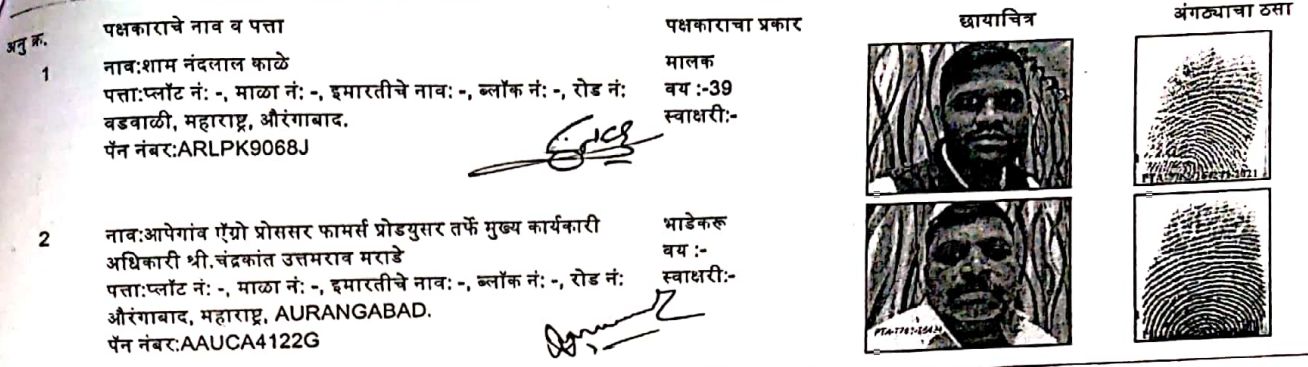 अनु क्र. पक्षकाराचे नाव व पत्ता पक्षकाराचा प्रकार छायाचित्र अंगठ्याचा ठसा
1 नाव:शाम नंदलाल काळे मालक
पत्ता:प्लॉट नं: -, माळा नं: -, इमारतीचे नाव: -, ब्लॉक नं: -, रोड नं: वय :-39
वडवाळी, महाराष्ट्र, औरंगाबाद. स्वाक्षरी:-
पॅन नंबर:ARLPK9068J
2 नाव:आपेगांव ऍग्रो प्रोससर फामर्स प्रोडयुसर तर्फे मुख्य कार्यकारी भाडेकरू
अधिकारी श्री.चंद्रकांत उत्तमराव मराडे वय :-
पत्ता:प्लॉट नं: -, माळा नं: -, इमारतीचे नाव: -, ब्लॉक नं: -, रोड नं: स्वाक्षरी:-
औरंगाबाद, महाराष्ट्र, AURANGABAD.
पॅन नंबर:AAUCA4122G